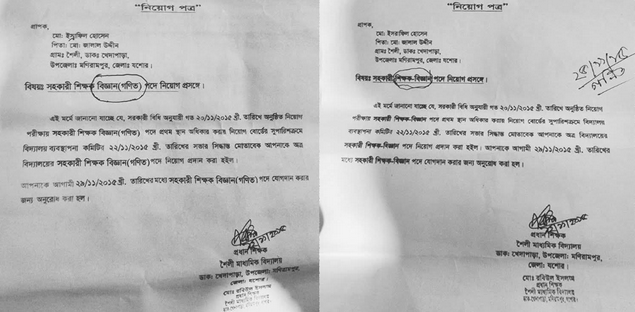 "নিয়োগ পত্র"
প্রাপক,
মো: ইস্রাফিল হোসেন
পিতা: মো: জালাল উদ্দীন
গ্রামঃ শৈলী, ডাকঃ খেদাপাড়া,
উপজেলাঃ মণিরামপুর, জেলাঃ যশোর।
বিষয়ঃ সহকারী শিক্ষক বিজ্ঞান(গণিত) পদে নিয়োগ প্রসঙ্গে।
এই মর্মে জানানো যাচ্ছে যে, সরকারী বিধি অনুযায়ী গত ২০/১১/২০১৫ খ্রী. তারিখে অনুষ্ঠিত নিয়োগ
পরীক্ষায় সহকারী শিক্ষক বিজ্ঞান(গণিত) পদে প্রথম স্থান অধিকার করায় নিয়োগ বোর্ডের সুপারিশক্রমে
বিদ্যালয় ব্যবস্থাপনা কমিটির ২২/১১/২০১৫ খ্রী. তারিখের সভার সিদ্ধান্ত মোতাবেক আপনাকে অত্র
বিদ্যালয়ের সহকারী শিক্ষক বিজ্ঞান(গণিত) পদে নিয়োগ প্রদান করা হইল।
আপনাকে আগামী ২৯/১১/২০১৫ খ্রী. তারিখের মধ্যে সহকারী শিক্ষক বিজ্ঞান(গণিত) পদে যোগদান করার
জন্য অনুরোধ করা হল।
প্রধান শিক্ষক
শৈলী মাধ্যমিক বিদ্যালয়
ডাক: খেদাপাড়া, উপজেলা: মণিরামপুর,
জেলা: যশোর।
মোঃ রবিউল ইসলাম
প্রধান শিক্ষক
শৈলী মাধ্যমিক বিদ্যালয়
"নিয়োগ পত্র"
প্রাপক,
মো: ইসরাফিল হোসেন
পিতা: মো: জালাল উদ্দীন
গ্রাম: শৈলী, ডাক: খেদাপাড়া,
উপজেলা: মণিরামপুর, জেলা: যশোর।
গণিত
বিষয়: সহকারী শিক্ষক-বিজ্ঞান পদে নিয়োগ প্রসঙ্গে।
এই মর্মে জানানো যাচ্ছে যে, সরকারী বিধি অনুযায়ী গত ২০/১১/২০১৫ খ্রী. তারিখে অনুষ্ঠিত নিয়োগ
পরীক্ষায় সহকারী শিক্ষক-বিজ্ঞান পদে প্রথম স্থান অধিকার করায় নিয়োগ বোর্ডের সুপারিশক্রমে বিদ্যালয়
ব্যবস্থাপনা কমিটি ২২/১১/২০১৫ খ্রী. তারিখের সভার সিদ্ধান্ত মোতাবেক আপনাকে অত্র বিদ্যালয়ের
সহকারী শিক্ষক-বিজ্ঞান পদে নিয়োগ প্রদান করা হইল। আপনাকে আগামী ২৯/১১/২০১৫ খ্রী. তারিখের
মধ্যে সহকারী শিক্ষক-বিজ্ঞান পদে যোগদান করার জন্য অনুরোধ করা হল।
প্রধান শিক্ষক
শৈলী মাধ্যমিক বিদ্যালয়
ডাক: খেদাপাড়া, উপজেলা: মণিরামপুর,
জেলা: যশোর।
মোঃ রবিউল ইসলাম
প্রধান শিক্ষক
শৈলী মাধ্যমিক বিদ্যালয়